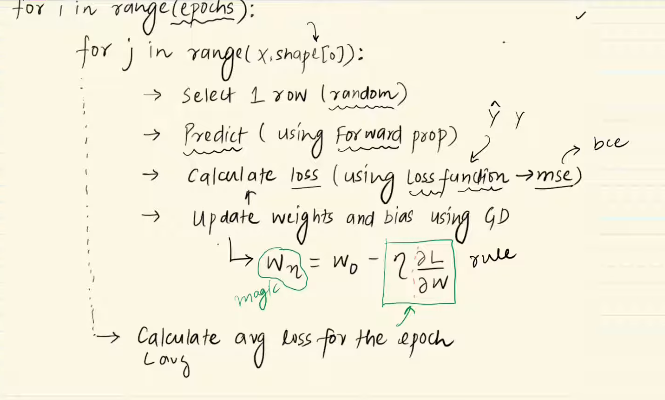 for i in range(epochs):
for j in range(X.shape[0]):
→ Select 1 row (random)
→ Predict (using Forward prop)
Ŷ Y
→ Calculate loss (using Loss function → mse) → bce
→ Update weights and bias using GD
↳ Wn = Wo - η ∂L/∂W rule
magic
→ Calculate avg loss for the epoch
Lavg